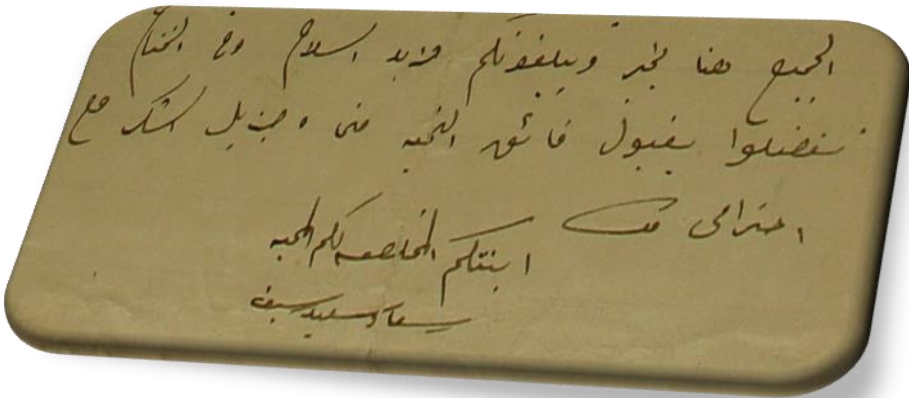 الجميع هنا بخير ويبلغونكم مزيد السلام وفي الختام
تفضلوا بقبول فائق التحيه منى وجزيل الشكر مع
احترامى
ابنتكم المخلصه لكم المحبه
سعاد سعيد سيف